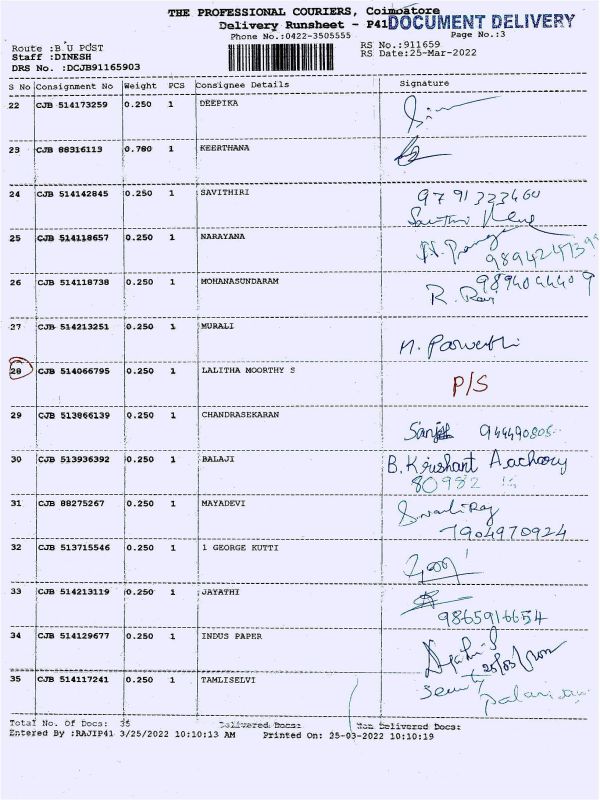 THE PROFESSIONAL COURIERS, Coimbatore
Delivery Runsheet - P41 DOCUMENT DELIVERY
Phone No.:0422-3505555 Page No.:3
Route :B U POST RS No.:911659
Staff :DINESH RS Date:25-Mar-2022
DRS No. :DCJB91165903
S No Consignment No Weight PCS Consignee Details Signature
22 CJB 514173259 0.250 1 DEEPIKA
23 CJB 88316113 0.780 1 KEERTHANA
24 CJB 514142845 0.250 1 SAVITHIRI 9791323460
25 CJB 514118657 0.250 1 NARAYANA
26 CJB 514118738 0.250 1 MOHANASUNDARAM 9894044409
R. Ravi
27 CJB 514213251 0.250 1 MURALI
M. Parwathi
28 CJB 514066795 0.250 1 LALITHA MOORTHY S
P/S
29 CJB 513866139 0.250 1 CHANDRASEKARAN
944490805
30 CJB 513936392 0.250 1 BALAJI B. Krishant Aachoory
80982
31 CJB 88275267 0.250 1 MAYADEVI
7904970924
32 CJB 513715546 0.250 1 1 GEORGE KUTTI
33 CJB 514213119 0.250 1 JAYATHI
9865916654
34 CJB 514129677 0.250 1 INDUS PAPER
35 CJB 514117241 0.250 1 TAMLISELVI Security
Total No. Of Docs: 35 Delivered Docs: Non Delivered Docs:
Entered By :RAJIP41 3/25/2022 10:10:13 AM Printed On: 25-03-2022 10:10:19